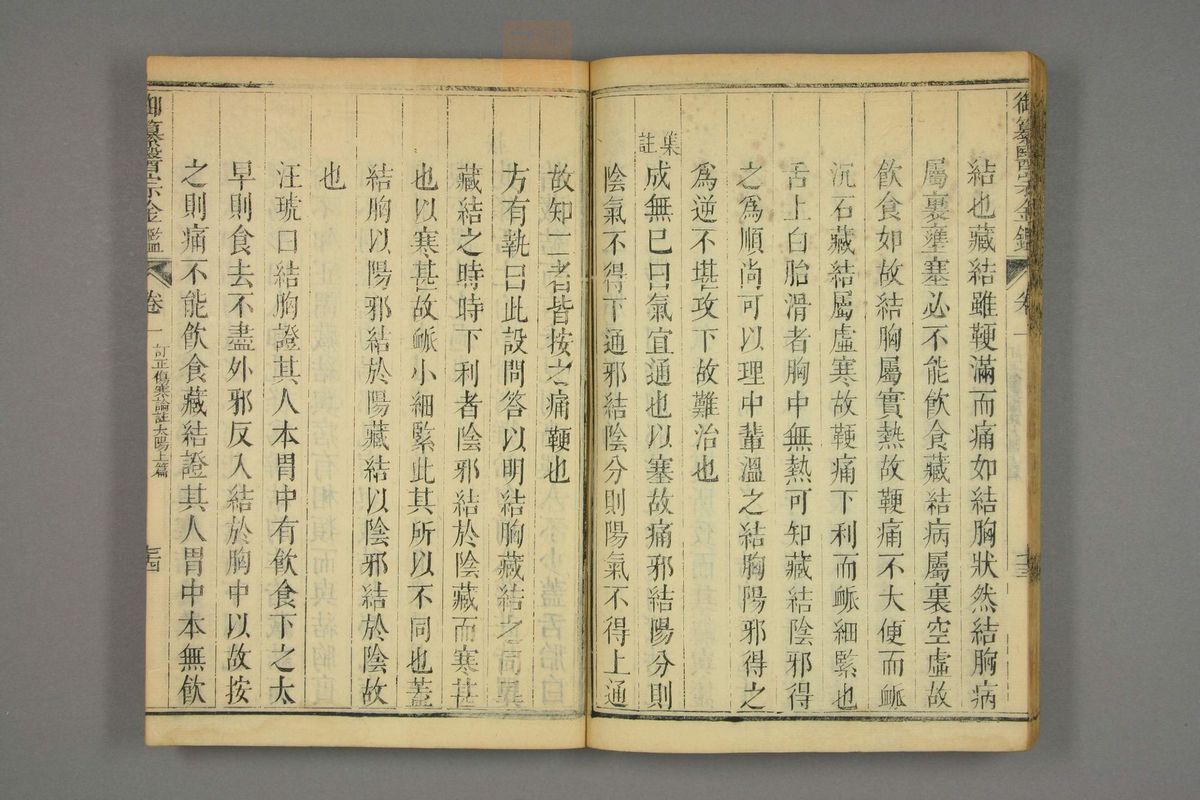 御纂醫宗金鑑
卷一
三三
結也藏結雖鞕滿而痛如結胸狀然結胸病
屬裏壅塞必不能飲食藏結病屬裏空虛故
飲食如故結胸屬實熱故鞕痛不大便而䘑
沉石藏結屬虛寒故鞕痛下利而䘑細緊也
舌上白胎滑者胸中無熱可知藏結陰邪得
之爲順尚可以理中輩溫之結胸陽邪得之
爲逆不堪攻下故難治也
集註
成無巳曰氣宜通也以塞故痛邪結陽分則
陰氣不得下通邪結陰分則陽氣不得上通
故知二者皆按之痛鞕也
方有執曰此設問答以明結胸藏結之同異
藏結之時時下利者陰邪結於陰藏而寒甚
也以寒甚故䘑小細緊此其所以不同也蓋
結胸以陽邪結於陽藏結以陰邪結於陰故
也
汪琥曰結胸證其人本胃中有飲食下之太
早則食去不盡外邪反入結於胸中以故按
之則痛不能飲食藏結證其人胃中本無飲
御纂醫宗金鑑
卷一
訂正傷寒論註太陽上篇
三四